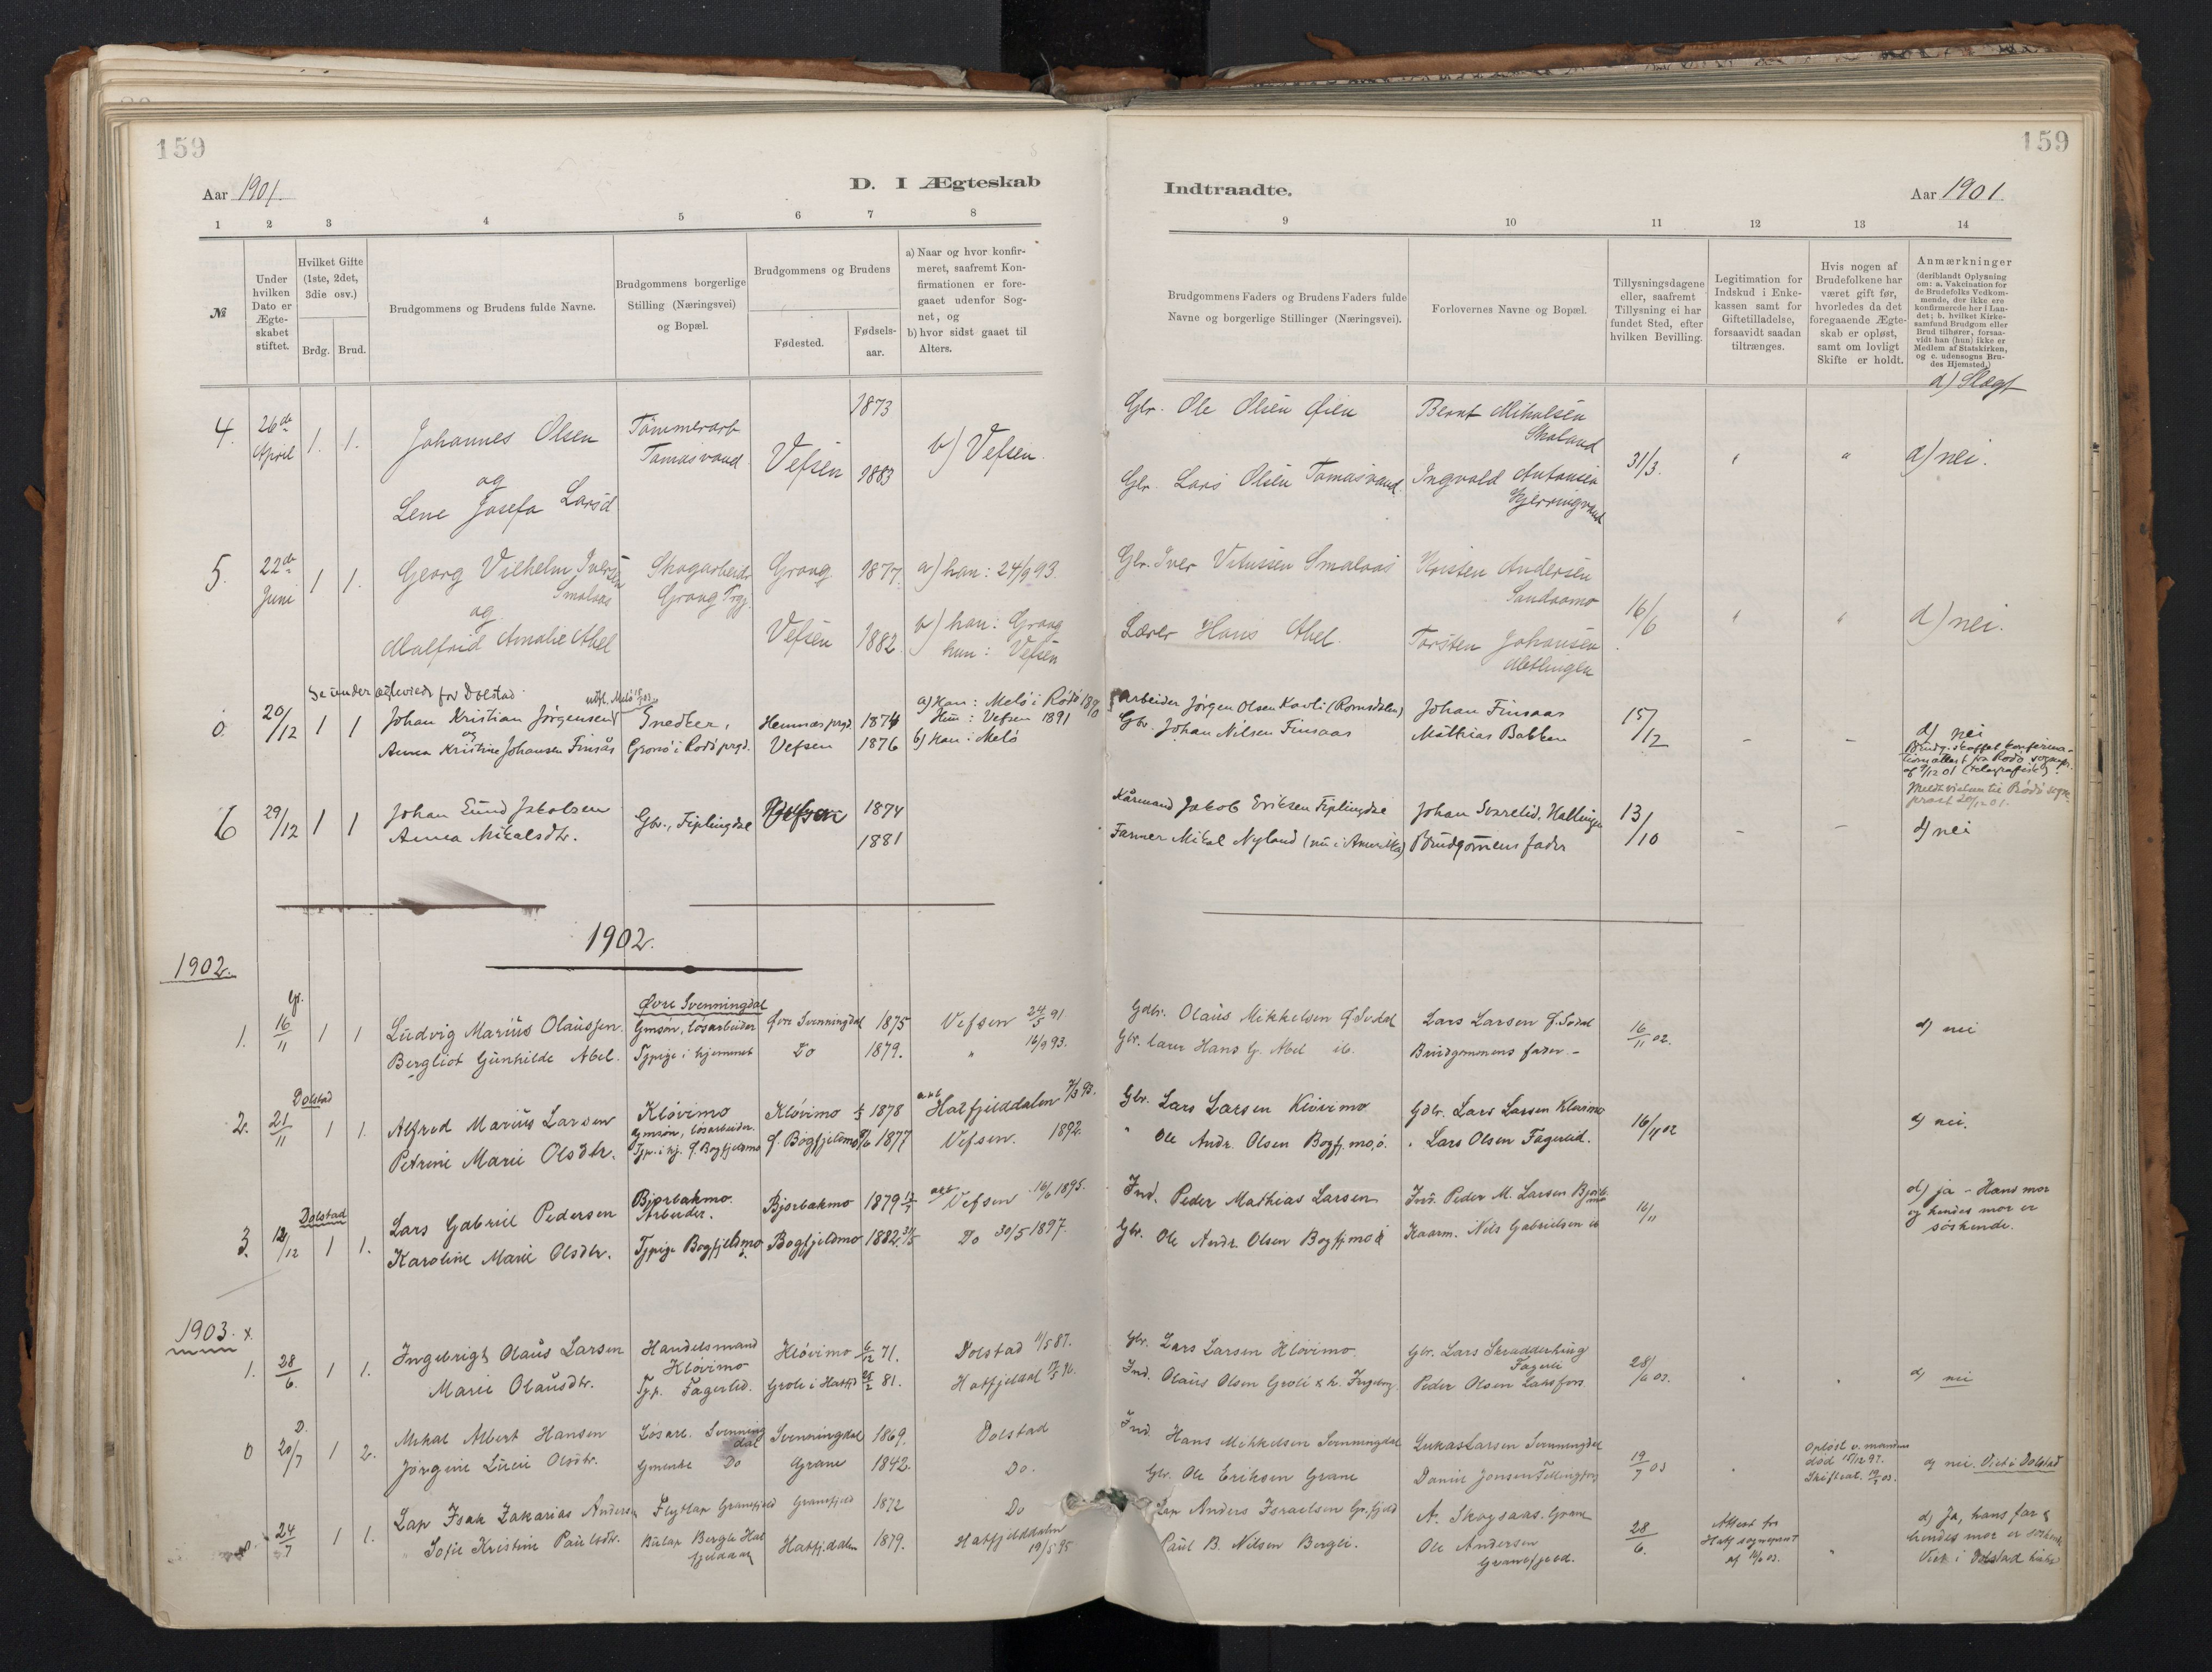 159
159
Aar 1901.
D. I Ægteskab
Indtraadte.
Aar 1901.
1 2 3 4 5 6 7 8
9 10 11 12 13 14
№
Under hvilken Dato er Ægte-skabet stiftet.
Hvilket Gifte (1ste, 2det, 3die osv.)
Brdg. Brud.
Brudgommens og Brudens fulde Navne.
Brudgommens borgerlige Stilling (Næringsvei) og Bopæl.
Brudgommens og Brudens
Fødested.
Fødsels-aar.
a) Naar og hvor konfir-meret, saafremt Kon-firmationen er fore-gaaet udenfor Sog-net, og
b) hvor sidst gaaet til Alters.
Brudgommens Faders og Brudens Faders fulde Navne og borgerlige Stillinger (Næringsvei).
Forlovernes Navne og Bopæl.
Tillysningsdagene eller, saafremt Tillysning ei har fundet Sted, efter hvilken Bevilling.
Legitimation for Indskud i Enke-kassen samt for Giftetilladelse, forsaavidt saadan tiltrænges.
Hvis nogen af Brudefolkene har været gift før, hvorledes da det foregaaende Ægte-skab er opløst, samt om lovligt Skifte er holdt.
Anmærkninger
(deriblandt Oplysning om: a. Vakcination for de Brudefolks Vedkom-mende, der ikke ere konfirmerede her i Lan-det; b. hvilket Kirke-samfund Brudgom eller Brud tilhører, forsaa-vidt han (hun) ikke er Medlem af Statskirken, og c. udensogns Bru-des Hjemsted.)
d) Slægt
4. 26de April 1. 1. Johannes Olsen Tømmerarb Tomasvand Vefsen 1873 b) Vefsen. Gbr. Ole Olsen Øien Bernt Mikalsen Skoland 31/3. " " d) nei.
og
Lene Josefa Larsd 1883 Gbr. Lars Olsen Tomasvand. Ingvald Antonsen
5. 22de Juni 1 1. Georg Vilhelm Iversen Smalaas Skogarbeider Grong Prgj. Grong 1877. a) han: 24/9 93. Gbr. Iver Vitussen Smalaas Kristen Andersen Sandaamo 16/6 " " d) nei.
og
Malfrid Amalie Abel Vefsen 1882. b) han: Grong hun: Vefsen Lærer Hans Abel. Torsten Johansen
Se under ægteviede for Dolstad
0. 20/12 1 1 Johan Kristian Jørgensen Snedker, Hemnæs prgd. 1874 a) Han: Melø i Rødø 1890 Arbeider Jørgen Olsen Kavli (Romsdalen) Johan Finsaas 15/12 - - d) nei
og
Anna Kristine Johansen Finsås Gronø i Rødø prgd. Vefsen 1876 Hun: Vefsen 1891 b) Han: Melø Gbr. Johan Nilsen Finsaas Mathias Bakken
Brudg. skaffet konfirma-
tionsattest fra Rødø sognepr.
af 9/12 01 (telegrafisk).
Meldt vielsen til Rødø sogne-
prest 20/12 01.
6 29/12 1 1 Johan Eund Jakobsen Gbr., Fiplingdal Vefsen 1874 Kårmand Jakob Eriksen Fiplingdal Johan Svarelid, Hallingen 13/10 - - d) nei
Anna Mikalsdtr. 1881 Farmer Mikal Nyland (nu i Amerika) Brudgommens fader
1902.
1902.
Gr.
1. 16/11 1 1 Ludvig Marius Olaussen. Øvre Svenningdal Gmsøn, løsarbeider Øvre Svenningdal 1875 Vefsen 24/5 91. Gdbr. Olaus Mikkelsen Ø. Svdal Lars Larsen Ø. Svdal 16/11 02. d) nei
Bergliot Gunhilde Abel. Tjpige i hjemmet Do 1879. " 16/9 93. Gbr. lærer Hans G. Abel ib. Brudgommens fader.-
Dolstad
2. 21/11 1 1. Alfred Marius Larsen Kløvimo Gmsøn, løsarbeider. Kløvimo 1878 Hatfjelddalen Gbr. Lars Larsen Kløvimo Gdbr. Lars Larsen Kløvimo 16/11 02 d) nei.
Petrine Marie Olsdtr. Tjp. i hj. Ø. Bogfjeldmo Ø. Bogfjeldmo 1877 Vefsen. 1892. " Ole Andr. Olsen Bogfj.mo,ø. " Lars Olsen Fagerlid.
Dolstad
3. 12/12 1 1. Lars Gabriel Pedersen Bjørbakmo. Arbeider. Bjørbakmo 1879 a&b Vefsen 16/6 1895. Ind. Peder Mathias Larsen Ind. Peder M. Larsen Bjørb.mo 16/11 d) ja - Hans mor
og hendes mor er
søskende.
Karoline Marie Olsdtr. Tjpige Bogfjeldmo Bogfjeldmo 1882 Do 30/5 1897. Gbr. Ole Andr. Olsen Bogfj.mo ø Kaarm. Nils Gabrielsen ib
1903. x.
1. 28/6. 1 1. Ingebrigt Olaus Larsen Handelsmand Kløvimo Kløvimo 6/12 71. Dolstad 11/5 87. Gbr. Lars Larsen Kløvimo. Gbr. Lars Skrædderhing Fagerli 28/6 03. " " d) nei
Marie Olausdtr. Tjp. Fagerlid. Groli i Hatfjd 25/2 81. Hatfjeldal Ind. Olaus Olsen Groli & h. Ingeborg. Peder Olsen Laksfors
D.
0 20/7 1 2. Mikal Albert Hansen Løsarb. Svenningdal Svenningdal 1869. Dolstad Ind. Hans Mikkelsen Svenningdal Lukas Larsen Svenningdal 19/7 03 " Opløst v. mandens død 15/12 97. Skifteat. d) nei. Viet i Dolstad
Jørgine Lucie Olsdtr. Gmenke Do Grane 1842. Do. Gbr. Ole Eriksen Grane Daniel Jonsen
24/7 1 1. Lap Isak Zakarias Andersen Flytlap Granefjeld Granefjeld 1872 Do Lap Anders Israelsen Gr.fjeld A. Skogsaas. Grane 28/6. Attest fra Hatf sogneprest af 16/6 03. " d) Ja, hans far &
hendes mor er søskende
Viet i Dolstad kirke
" Sofie Kristine Paulsdtr. Bulap Bergli Hatfjelddalen Hatfj.dalen 1879. Hatfjelddalen 19/5 95 Paul B. Nilsen Bergli. Ole Andersen Granefjeld.